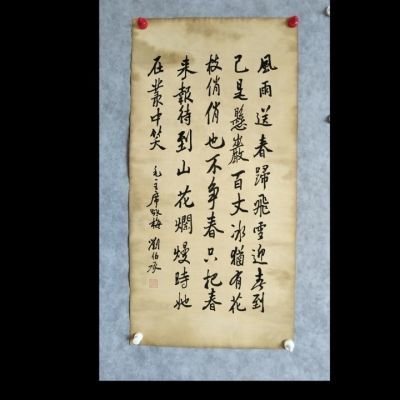 風雨送春歸飛雪迎春到
已是懸巖百丈冰猶有花
枝俏俏也不争春只把春
来報待到山花爛熳時她
在叢中笑
毛主席詠梅 劉伯承